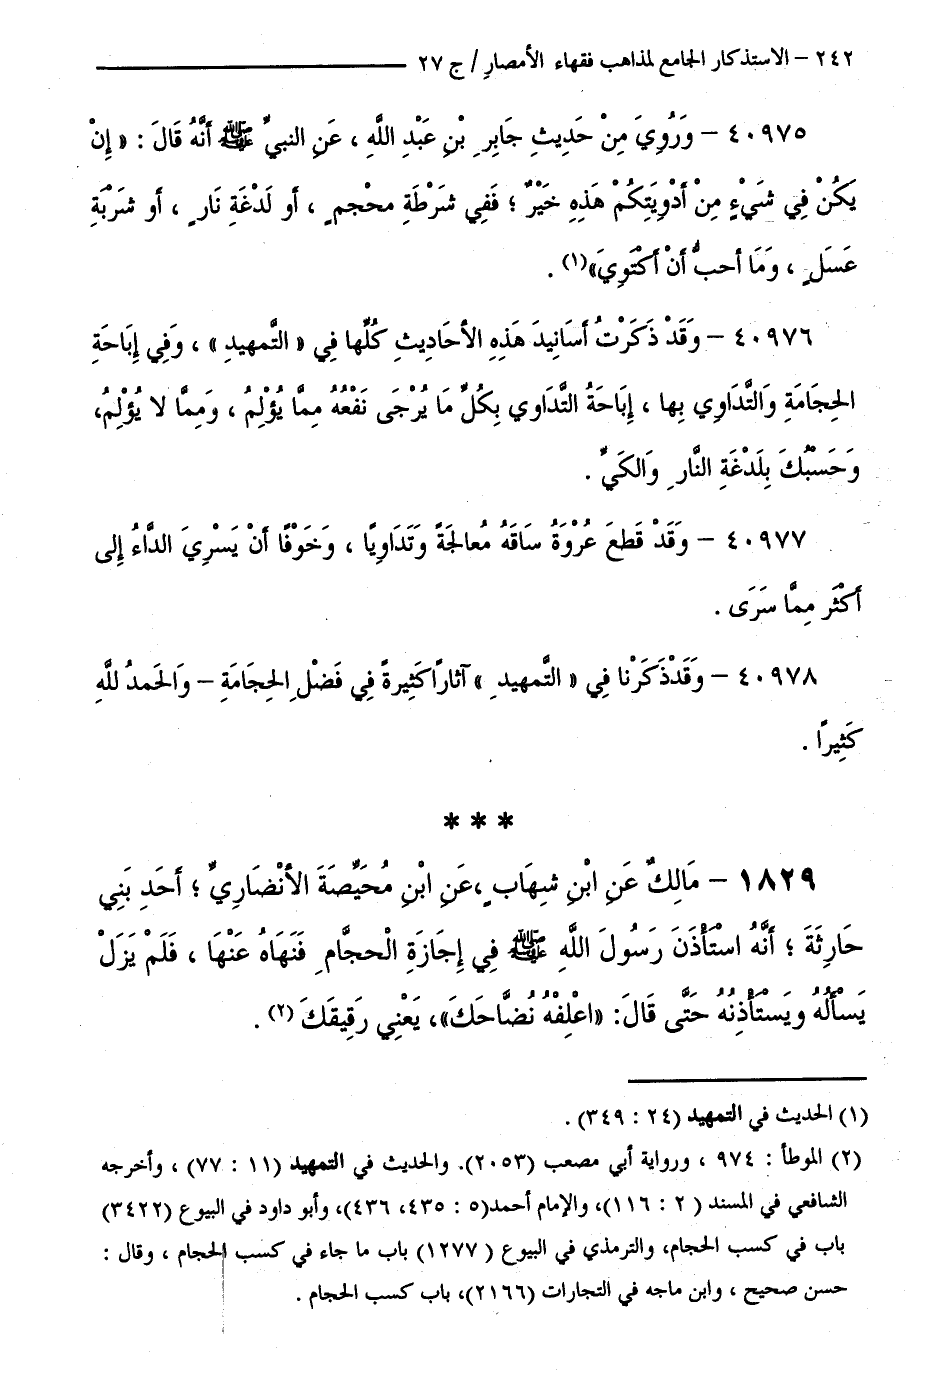 ٢٤٢ – الاستذكار الجامع لمذاهب فقهاء الأمصارِ / ج ٢٧
٤٠٩٧٥ – وَرُوِيَ مِنْ حَدِيثِ جَابِرِ بْنِ عَبْدِ اللَّهِ ، عَنِ النبيِّ ﷺ أَنَّهُ قَالَ : « إِنْ
يَكُنْ فِي شَيْءٍ مِنْ أَدْوِيَتِكُمْ هَذِهِ خَيْرٌ ؛ فَفِي شَرْطَةِ محْجمٍ ، أو لَدْغَةِ نَارٍ ، أو شَرْبَةِ
عَسَلٍ ، وَمَا أحبُّ أنْ أكْتَوِيَ»(١) .
٤٠٩٧٦ – وَقَدْ ذَكَرْتُ أسَانِيدَ هَذِهِ الأحَادِيثِ كُلِّها فِي « التَّمهيدِ » ، وَفِي إِبَاحَةِ
الحِجَامَةِ وَالتَّدَاوِي بِها ، إِبَاحَةُ التَّدَاوِي بِكُلِّ مَا يُرْجَى نَفْعُهُ مِمَّا يُؤْلِمُ ، وَمِمَّا لا يُؤْلِمُ،
وَحَسْبُكَ بِلَدْغَةِ النَّارِ وَالكَيِّ .
٤٠٩٧٧ – وَقَدْ قَطَعَ عُرْوَةُ سَاقَهُ مُعالَجَةً وَتَدَاوِيًا ، وَخَوْفًا أنْ يَسْرِيَ الدَّاءُ إِلى
أكْثَر مِمَّا سَرَى .
٤٠٩٧٨ – وَقَدْذَكَرْنا فِي « التَّمهيدِ » آثارًا كَثِيرةً فِي فَضْلِ الحِجَامَةِ – وَالحَمدُ للَّهِ
كَثِيرًا .
* * *
١٨٢٩ – مَالِكٌ عَنِ ابْنِ شِهَابٍ ،عَنِ ابْنِ مُحَيِّصَةَ الأنْصَارِيِّ ؛ أحَدِ بَنِي
حَارِثَةَ ؛ أنَّهُ اسْتَأْذَنَ رَسُولَ اللَّهِ ﷺ فِي إِجَازَةِ الْحجَّامِ فَنَهَاهُ عَنْهَا ، فَلَمْ يَزَلْ
يَسْألُهُ ويَسْتَأْذِنُهُ حَتَّى قَالَ: «اعْلِفْهُ نُضَّاحَكَ»، يَعْنِي رَقِيقَكَ (٢) .
(١) الحديث في التمهيد (٢٤ : ٣٤٩) .
(٢) الموطأ : ٩٧٤ ، ورواية أبي مصعب (٢٠٥٣). والحديث في التمهيد (١١ : ٧٧) ، وأخرجه
الشافعي في المسند ( ٢ : ١١٦)، والإمام أحمد(٥ : ٤٣٥، ٤٣٦)، وأبو داود في البيوع (٣٤٢٢)
باب في كسب الحجام، والترمذي في البيوع ( ١٢٧٧) باب ما جاء في كسب الحجام ، وقال :
حسن صحيح ، وابن ماجه في التجارات (٢١٦٦)، باب كسب الحجام .